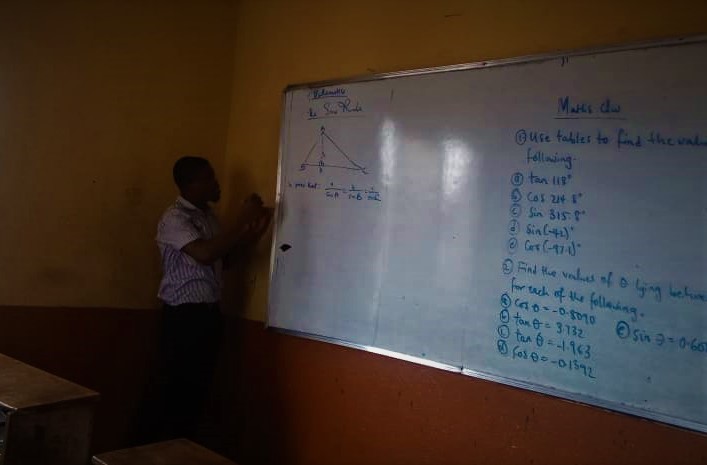 Mathematics
The Sine Rule
A
B
C
h
To prove that: a/SinA = b/SinB = c/SinC
Maths C/W
① Use tables to find the value
following.
ⓐ tan 118°
ⓑ Cos 214.8°
ⓒ Sin 315.8°
ⓓ Sin(-42)°
ⓔ Cos(-97.1)°
② Find the values of θ lying betwee
for each of the following.
ⓐ Cos θ = -0.8090
ⓑ tan θ = 3.732
ⓒ tan θ = -1.963
ⓓ Cos θ = -0.1392
ⓔ Sin θ = 0.60